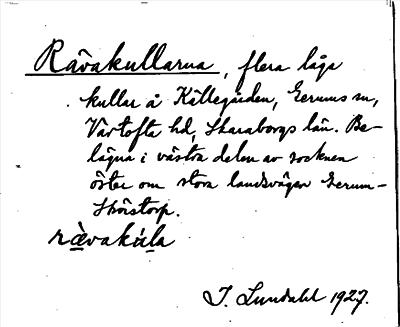 Rävakullarna, flera låga
kullar å Källegården, Gerums sn,
Vartofta hd, Skaraborgs län. Be-
lägna i västra delen av socknen
öster om stora landsvägen Gerum-
Skörstorp.
rävakúla
J. Lundahl 1927.